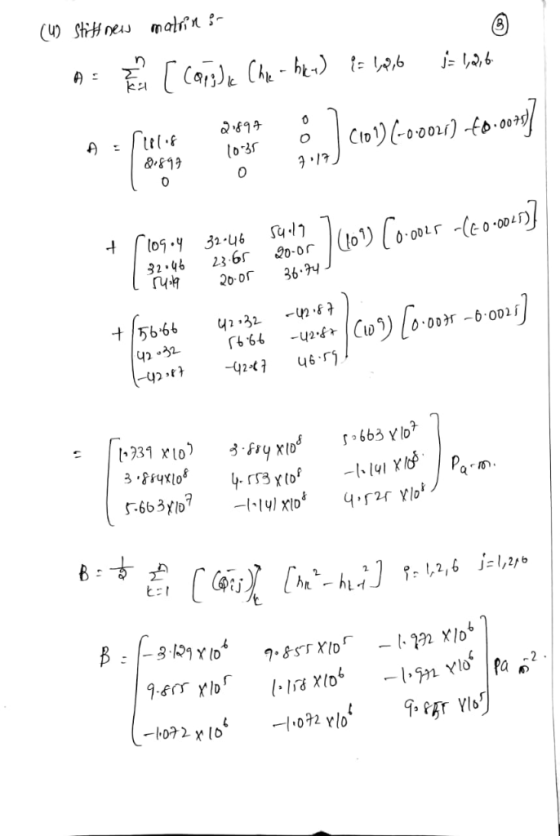 (4) Stiffness matrix :- (3)
A = n Σ k=1 [ (Q̄ij)k (hk - hk-1) i = 1,2,6 j = 1,2,6
A = [ 181.8 2.897 0
2.897 10.35 0
0 0 7.17 ] (10⁹) (-0.0025) - (-0.0075)]
+ [ 109.4 32.46 54.19
32.46 23.65 20.05
54.19 20.05 36.74 ] (10⁹) [0.0025 - (-0.0025)]
+ [ 56.66 42.32 -42.87
42.32 56.66 -42.87
-42.87 -42.87 46.59 ] (10⁹) [0.0075 - 0.0025]
= [ 1.739 x 10⁹ 3.884 x 10⁸ 5.663 x 10⁷
3.884 x 10⁸ 4.553 x 10⁸ -1.141 x 10⁸
5.663 x 10⁷ -1.141 x 10⁸ 4.525 x 10⁸ ] Pa-m.
B = 1/2 n Σ k=1 [ (Q̄ij)k [hk² - hk-1²] i = 1,2,6 j = 1,2,6
B = [ -3.129 x 10⁶ 9.855 x 10⁵ -1.972 x 10⁶
9.855 x 10⁵ 1.158 x 10⁶ -1.972 x 10⁶
-1.072 x 10⁶ -1.072 x 10⁶ 9.855 x 10⁵ ] Pa m².